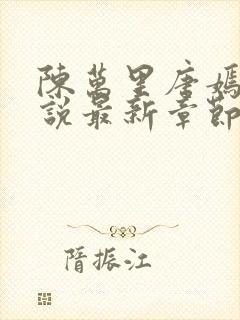 陳萬里唐嫣
說最新章節
隋振江